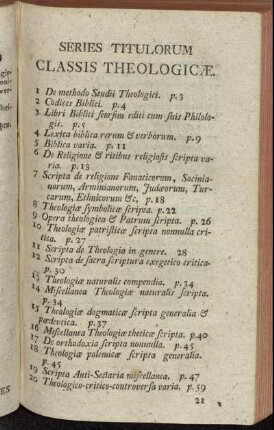 SERIES TITULORUM
CLASSIS THEOLOGICÆ.
1 De methodo Studii Theologici. p. 3
2 Codices Biblici. p. 4
3 Libri Biblici seorsim editi cum suis Philolo-
gis. p. 5
4 Lexica biblica rerum & verborum. p. 9
5 Biblica varia. p. 11
6 De Religione & ritibus religiosis scripta va-
ria. p. 13
7 Scripta de religione Fanaticorum, Socinia-
norum, Arminianorum, Judæorum, Tur-
carum, Ethnicorum &c, p. 18
8 Theologiæ symbolicæ scripta. p. 22
9 Opera theologica & Patrum scripta. p. 26
10 Theologiæ patristicæ scripta nonnulla cri-
tica. p. 27
11 Scripta de Theologia in genere. 28
12 Scripta de sacra scriptura exegetico critica.
p. 30
13 Theologiæ naturalis compendia. p. 34
14 Miscellanea Theologiæ naturalis scripta.
p. 34
15 Theologiæ dogmaticæ scripta generalia &
pædevtica. p. 37
16 Miscellanea Theologiæ theticæ scripta. p. 40
17 De orthodoxia scripta nonnulla. p. 45
18 Theologiæ polemicæ scripta generalia.
p. 45
19 Scripta Anti-Sectaria miscellanea. p. 47
20 Theologico-critico-controversa varia. p. 59
21